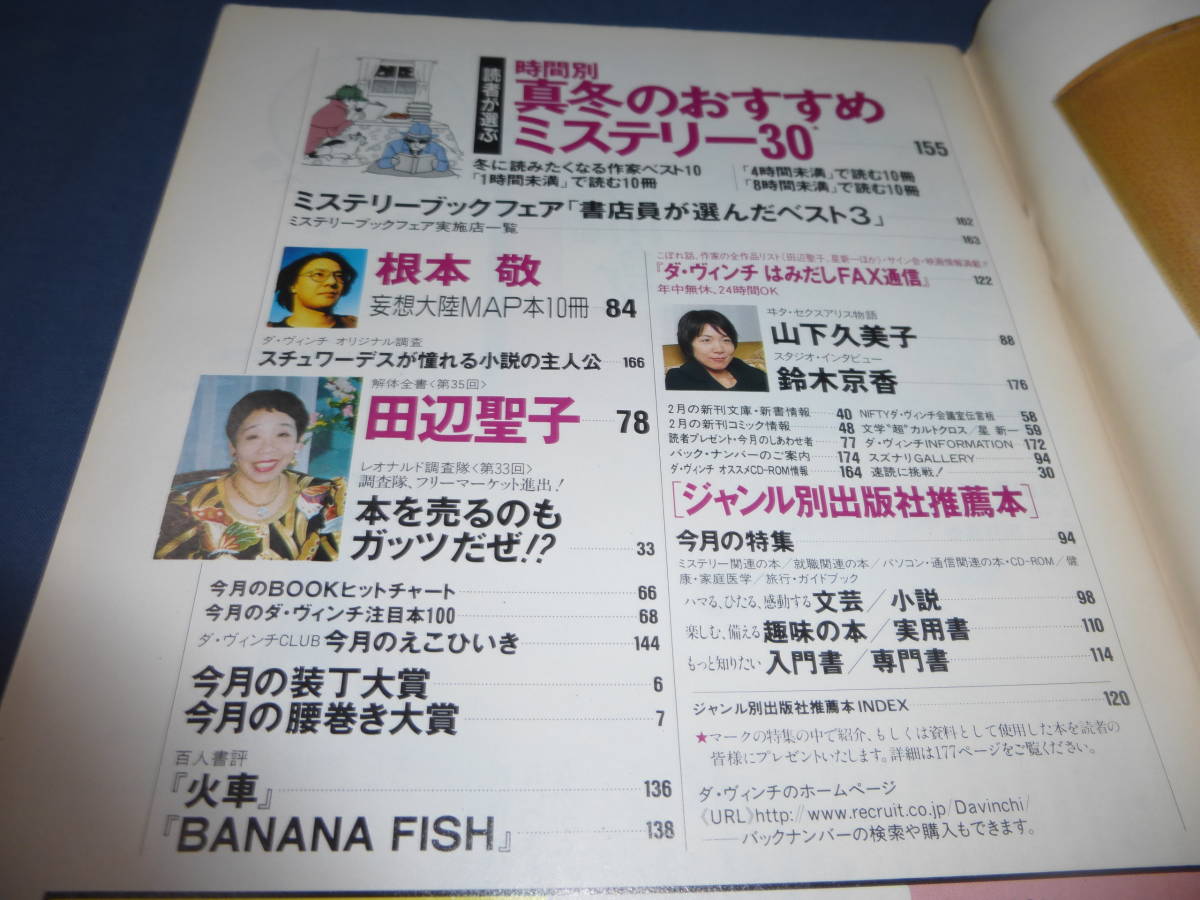 読者が選ぶ
時間別
真冬のおすすめ
ミステリー30* 155
冬に読みたくなる作家ベスト10
「1時間未満」で読む10冊
「4時間未満」で読む10冊
「8時間未満」で読む10冊
ミステリーブックフェア「書店員が選んだベスト3」 162
ミステリーブックフェア実施店一覧 163
根本 敬
妄想大陸MAP本10冊 84
ダ・ヴィンチ オリジナル調査
スチュワーデスが憧れる小説の主人公 166
解体全書〈第35回〉
田辺聖子 78
レオナルド調査隊〈第33回〉
調査隊、フリーマーケット進出!
本を売るのも
ガッツだぜ!? 33
今月のBOOKヒットチャート 66
今月のダ・ヴィンチ注目本100 68
ダ・ヴィンチCLUB 今月のえこひいき 144
今月の装丁大賞 6
今月の腰巻き大賞 7
百人書評
『火車』 136
『BANANA FISH』 138
こぼれ話、作家の全作品リスト(田辺聖子、星新一ほか)・サイン会・映画情報満載!!
『ダ・ヴィンチ はみだしFAX通信』 122
年中無休、24時間OK
ヰタ・セクスアリス物語
山下久美子 88
スタジオ・インタビュー
鈴木京香 176
2月の新刊文庫・新書情報 40
2月の新刊コミック情報 48
読者プレゼント・今月のしあわせ者 77
バック・ナンバーのご案内 174
ダ・ヴィンチ オススメCD-ROM情報 164
NIFTYダ・ヴィンチ会議室伝言板 58
文学"超"カルトクロス/星 新一 59
ダ・ヴィンチINFORMATION 172
スズナリGALLERY 94
速読に挑戦! 30
[ジャンル別出版社推薦本]
今月の特集 94
ミステリー関連の本/就職関連の本/パソコン・通信関連の本・CD-ROM/健
康・家庭医学/旅行・ガイドブック
ハマる、ひたる、感動する 文芸/小説 98
楽しむ、備える 趣味の本/実用書 110
もっと知りたい 入門書/専門書 114
ジャンル別出版社推薦本INDEX 120
★マークの特集の中で紹介、もしくは資料として使用した本を読者の
皆様にプレゼントいたします。詳細は177ページをご覧ください。
ダ・ヴィンチのホームページ
《URL》http://www.recruit.co.jp/Davinchi/
バックナンバーの検索や購入もできます。